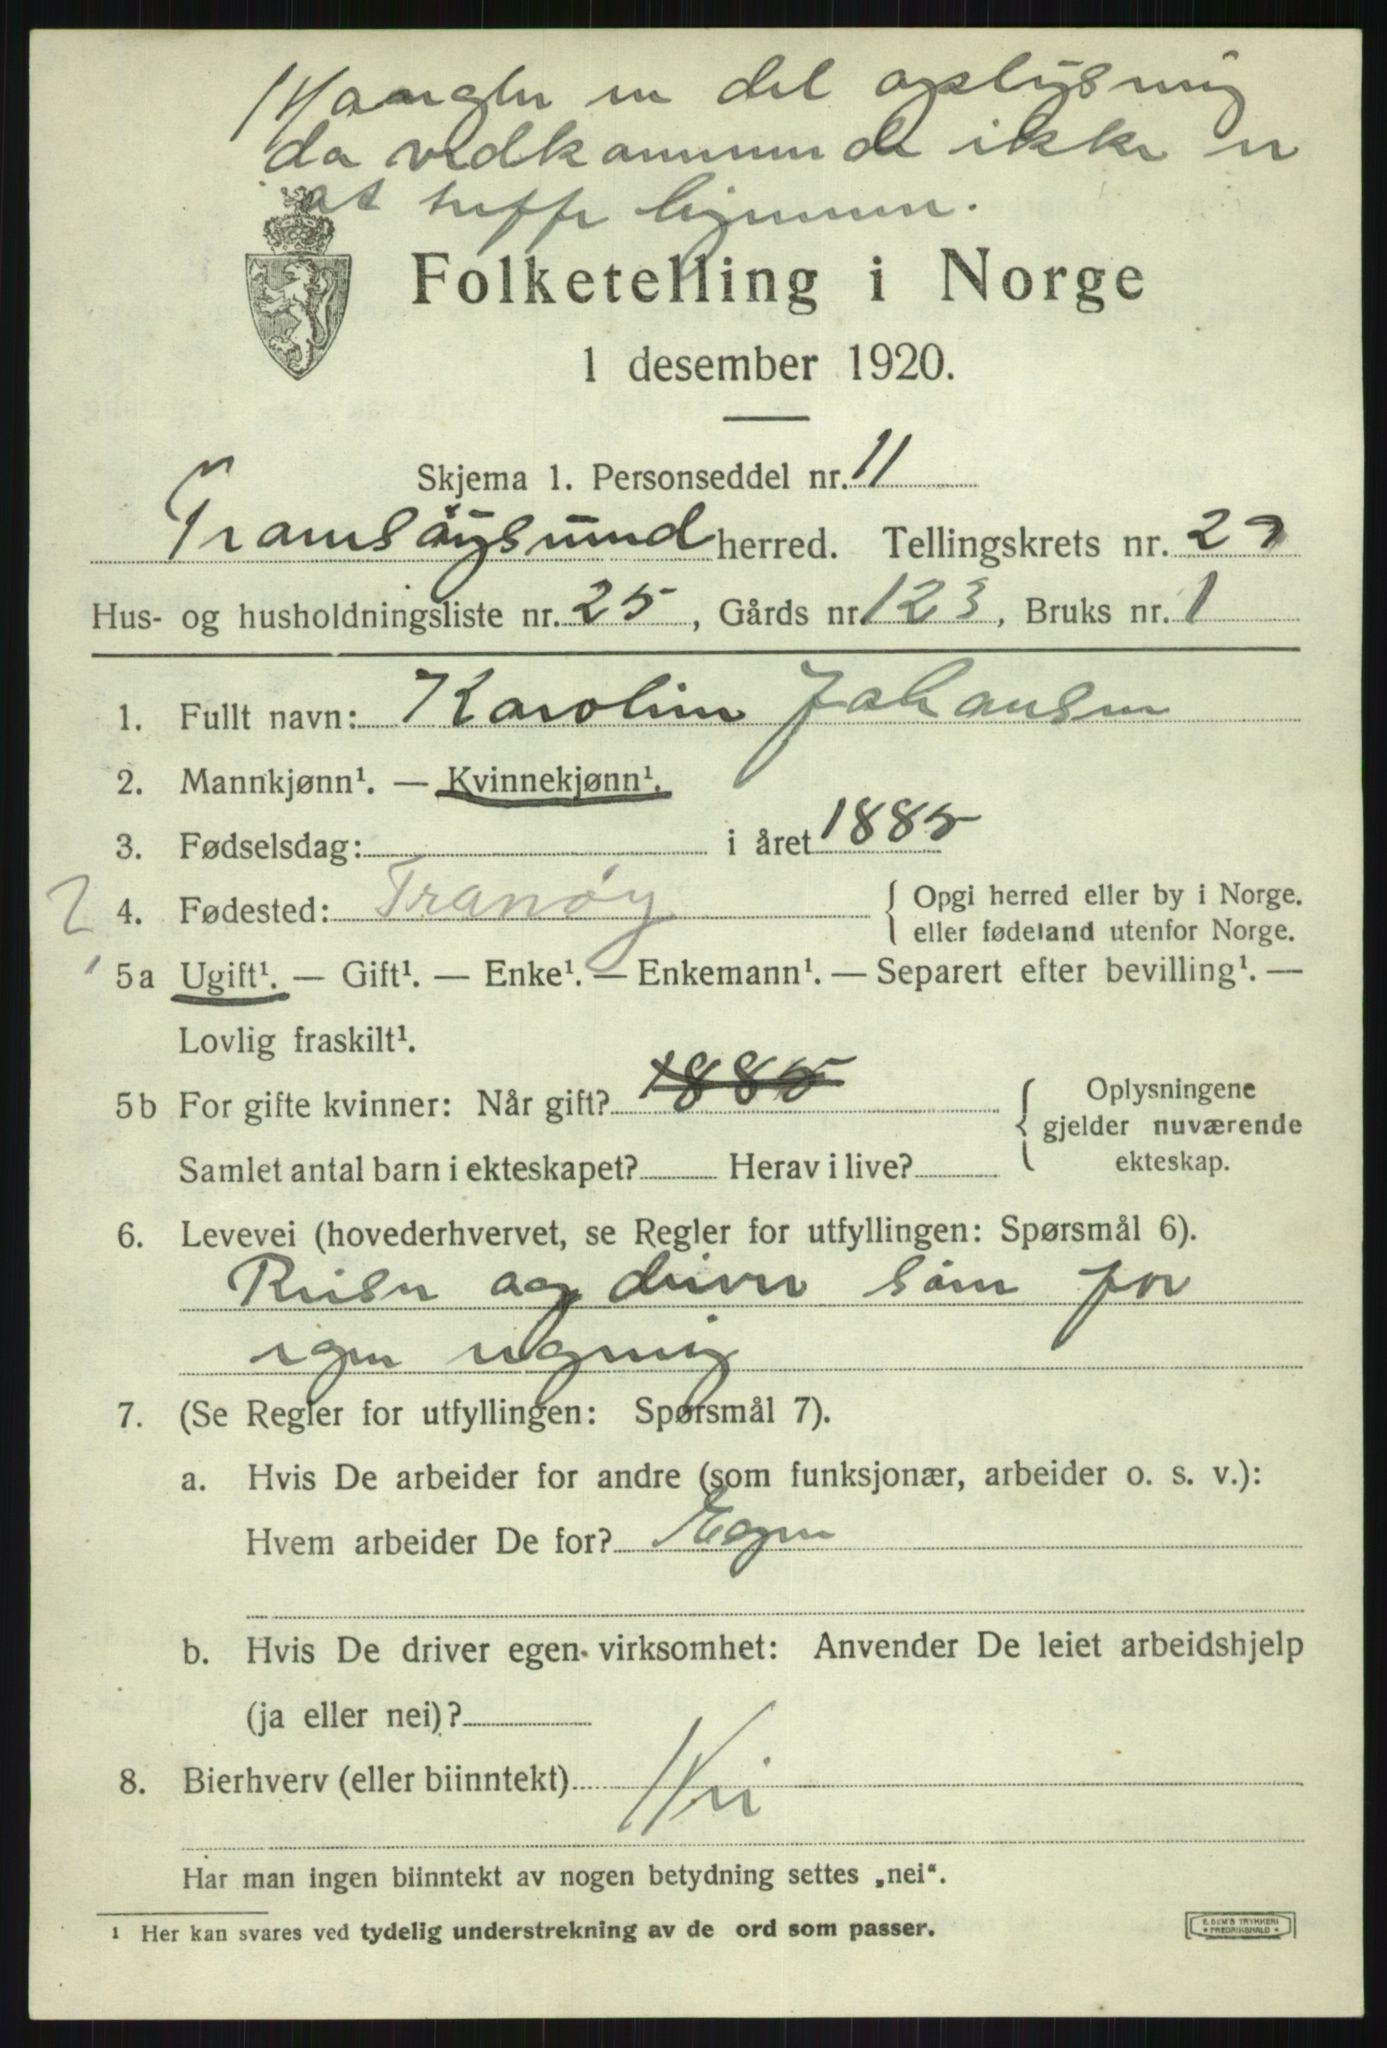 Mangler en del oplysning
da vedkommende ikke er
at treffe hjemme.
Folketelling i Norge
1 desember 1920.
Skjema 1. Personseddel nr. 11
Tromsøysund herred. Tellingskrets nr. 2
Hus- og husholdningsliste nr. 25, Gårds nr. 123, Bruks nr. 1
1. Fullt navn: Karoline Johansen
2. Mannkjønn¹. — Kvinnekjønn¹.
3. Fødselsdag: i året 1885
4. Fødested: Tranøy { Opgi herred eller by i Norge.
eller fødeland utenfor Norge.
5a Ugift¹. — Gift¹. — Enke¹. — Enkemann¹. — Separert efter bevilling¹. —
Lovlig fraskilt¹.
5b For gifte kvinner: Når gift? 1885 { Oplysningene
gjelder nuværende
Samlet antal barn i ekteskapet? Herav i live? ekteskap.
6. Levevei (hovederhvervet, se Regler for utfyllingen: Spørsmål 6).
Reiser og driver søm for
egen regning
7. (Se Regler for utfyllingen: Spørsmål 7).
a. Hvis De arbeider for andre (som funksjonær, arbeider o. s. v.):
Hvem arbeider De for? Egen
b. Hvis De driver egen virksomhet: Anvender De leiet arbeidshjelp
(ja eller nei)?
8. Bierhverv (eller biinntekt) Nei
Har man ingen biinntekt av nogen betydning settes „nei“.
¹ Her kan svares ved tydelig understrekning av de ord som passer.
E. SEM'S TRYKKERI
FREDRIKSHALD